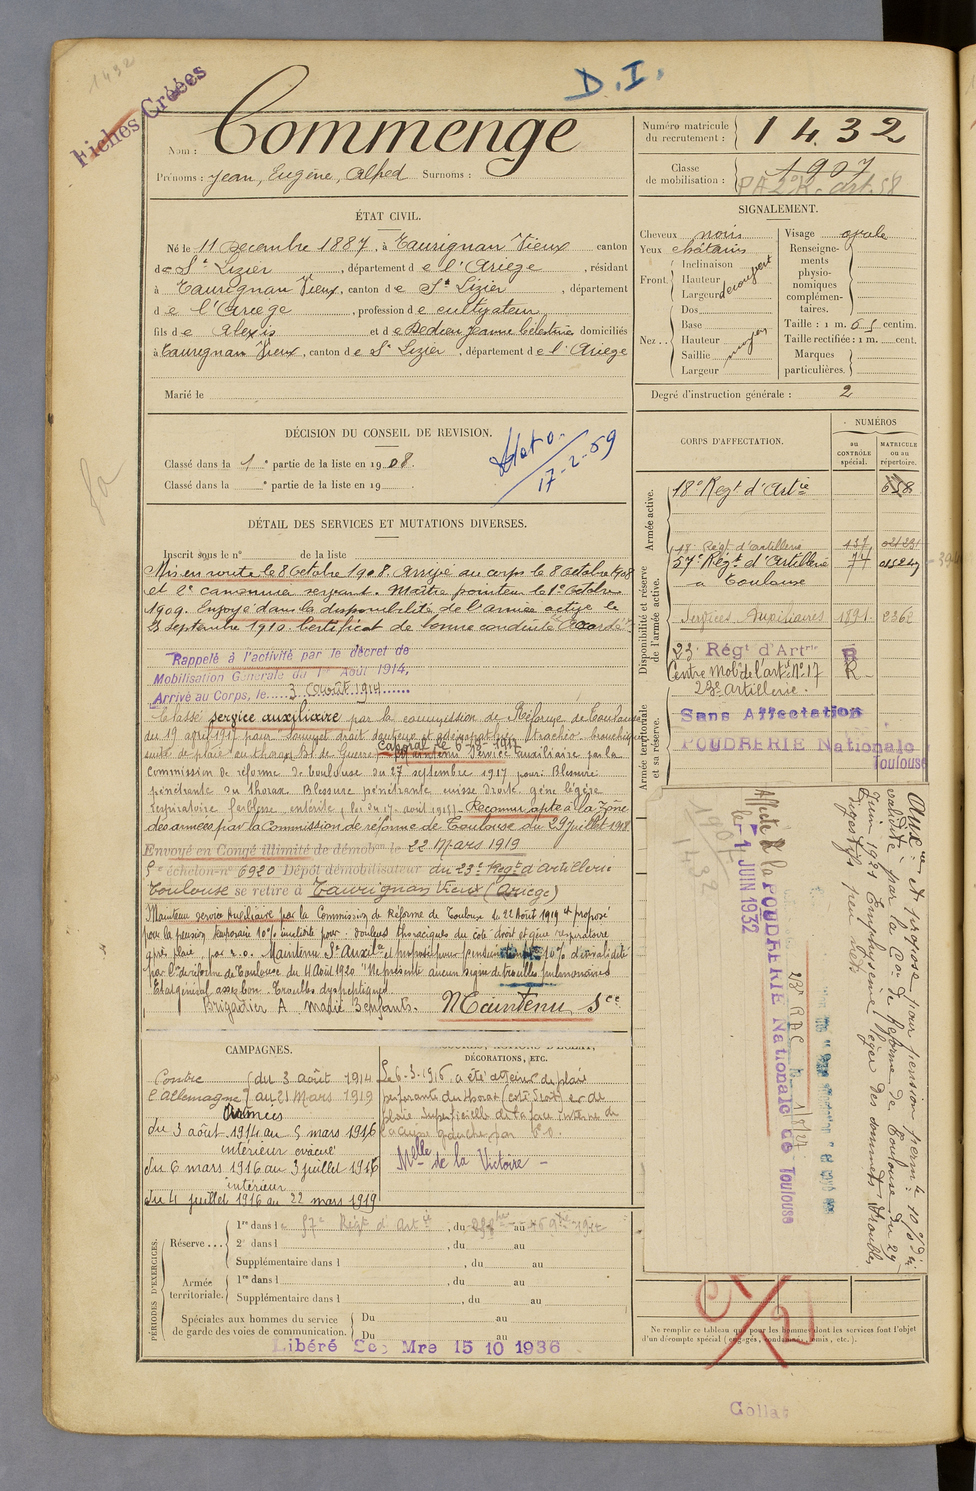 1432
Fiches Créées
D.I.
Nom : Commenge
Prénoms : Jean, Eugène, Alfred Surnoms :
Numéro matricule du recrutement : 1432
Classe de mobilisation : 1907
ÉTAT CIVIL.
Né le 11 Décembre 1887, à Taurignan Vieux canton
de St Lizier, département de l'Ariège, résidant
à Taurignan Vieux, canton de St Lizier, département
de l'Ariège, profession de cultivateur
fils de Alexis et de Dedieu Jeanne Célestine domiciliés
à Taurignan Vieux, canton de St Lizier, département de l'Ariège
Marié le
SIGNALEMENT.
Cheveux noirs
Yeux châtains
Front Inclinaison
Hauteur
Largeur découvert
Nez Dos
Base
Hauteur
Saillie moyen
Largeur
Visage ovale
Renseignements physionomiques complémentaires.
Taille : 1 m. 65 centim.
Taille rectifiée : 1 m. cent.
Marques particulières.
Degré d'instruction générale : 2
DÉCISION DU CONSEIL DE REVISION.
Classé dans la 1e partie de la liste en 1908.
Classé dans la e partie de la liste en 19
17-2-59
DÉTAIL DES SERVICES ET MUTATIONS DIVERSES.
Inscrit sous le n° de la liste
Mis en route le 8 Octobre 1908. Arrivé au corps le 8 Octobre 1908
et 2e canonnier servant. Maître pointeur le 1er Octobre
1909. Envoyé dans la disponibilité de l'armée active le
Septembre 1910. Certificat de bonne conduite Accordé
Rappelé à l'activité par le décret de
Mobilisation Générale du 1er Août 1914.
Arrivé au Corps, le 3 Août 1914
Classé service auxiliaire par la commission de Réforme de Toulouse
du 19 avril 1917 pour
suite de plaie au thorax Bl. de Guerre. caporal le Maintenu Service Auxiliaire par la
Commission de réforme de Toulouse du 27 septembre 1917 pour: Blessure
pénétrante du thorax. Blessure pénétrante cuisse droite gêne légère
respiratoire faiblesse entérite. Reconnu apte à la zône
des armées par la Commission de réforme de Toulouse du 29 juillet 1918
Envoyé en Congé illimité de démobon le 22 Mars 1919
5e échelon n° 6920 Dépôt démobilisateur du 23e Regt d'Artillerie
Toulouse se retire à Taurignan Vieux (Ariège)
Maintenu service Auxiliaire par la Commission de Réforme de Toulouse le 22 Août 1919 et proposé
pour la pension temporaire 10% invalidité pour: douleurs thoraciques du côté droit et gêne respiratoire
après plaie par e.o. Maintenu Sce Auxre et proposé pour pension 10% d'invalidité
par Con de réforme de Toulouse du 4 Août 1920 "Ne présente aucun signe de troubles pulmonaires
Etat général assez bon. Troubles dyspeptiques.
Brigadier A marié 3 enfants. Maintenu Sce
CORPS D'AFFECTATION.
NUMÉROS
au CONTRÔLE spécial.
MATRICULE ou au répertoire.
Armée active.
18e Regt d'Artie
Disponibilité et réserve de l'armée active.
18e Régt d'Artillerie 137
57e Régt d'Artillerie 77
à Toulouse
Services Auxiliaires 1891 2362
23 Régt d'Artrie R
Centre Mobre de l'artie N° 17 R
23e artillerie.
Armée territoriale et sa réserve.
Sans Affectation
POUDRERIE Nationale
Toulouse
Affecté à la POUDRERIE Nationale de Toulouse
le 1 JUIN 1932
1907
1432
23e RAC
Auxre et proposé pour pension perm. 10% d'invalidité par la Con de Réforme de Toulouse du 29 Juin 1921 Emphysème léger des sommets troubles digestifs peu nets
CAMPAGNES.
Contre l'Allemagne du 3 août 1914 au 21 Mars 1919
Armées
du 3 août 1914 au 5 mars 1916
intérieur évacué
du 6 mars 1916 au 3 juillet 1916
intérieur
du 4 juillet 1916 au 22 mars 1919
DÉCORATIONS, ETC.
Le 6-3-1916 a été atteint de plaie
perforante du thorax (côté droit) et de
plaie superficielle de la face interne de
la cuisse gauche par e.o.
Melle de la Victoire -
PÉRIODES D'EXERCICES.
Réserve 1re dans le 57e Régt d'Artie, du au
2e dans l , du au
Supplémentaire dans l , du au
Armée territoriale. 1re dans l , du au
Supplémentaire dans l , du au
Spéciales aux hommes du service de garde des voies de communication. Du au
Du au
Libéré Sce Mre 15 10 1936
Ne remplir ce tableau que pour les hommes dont les services font l'objet d'un décompte spécial (engagés, condamnés, omis, etc.).